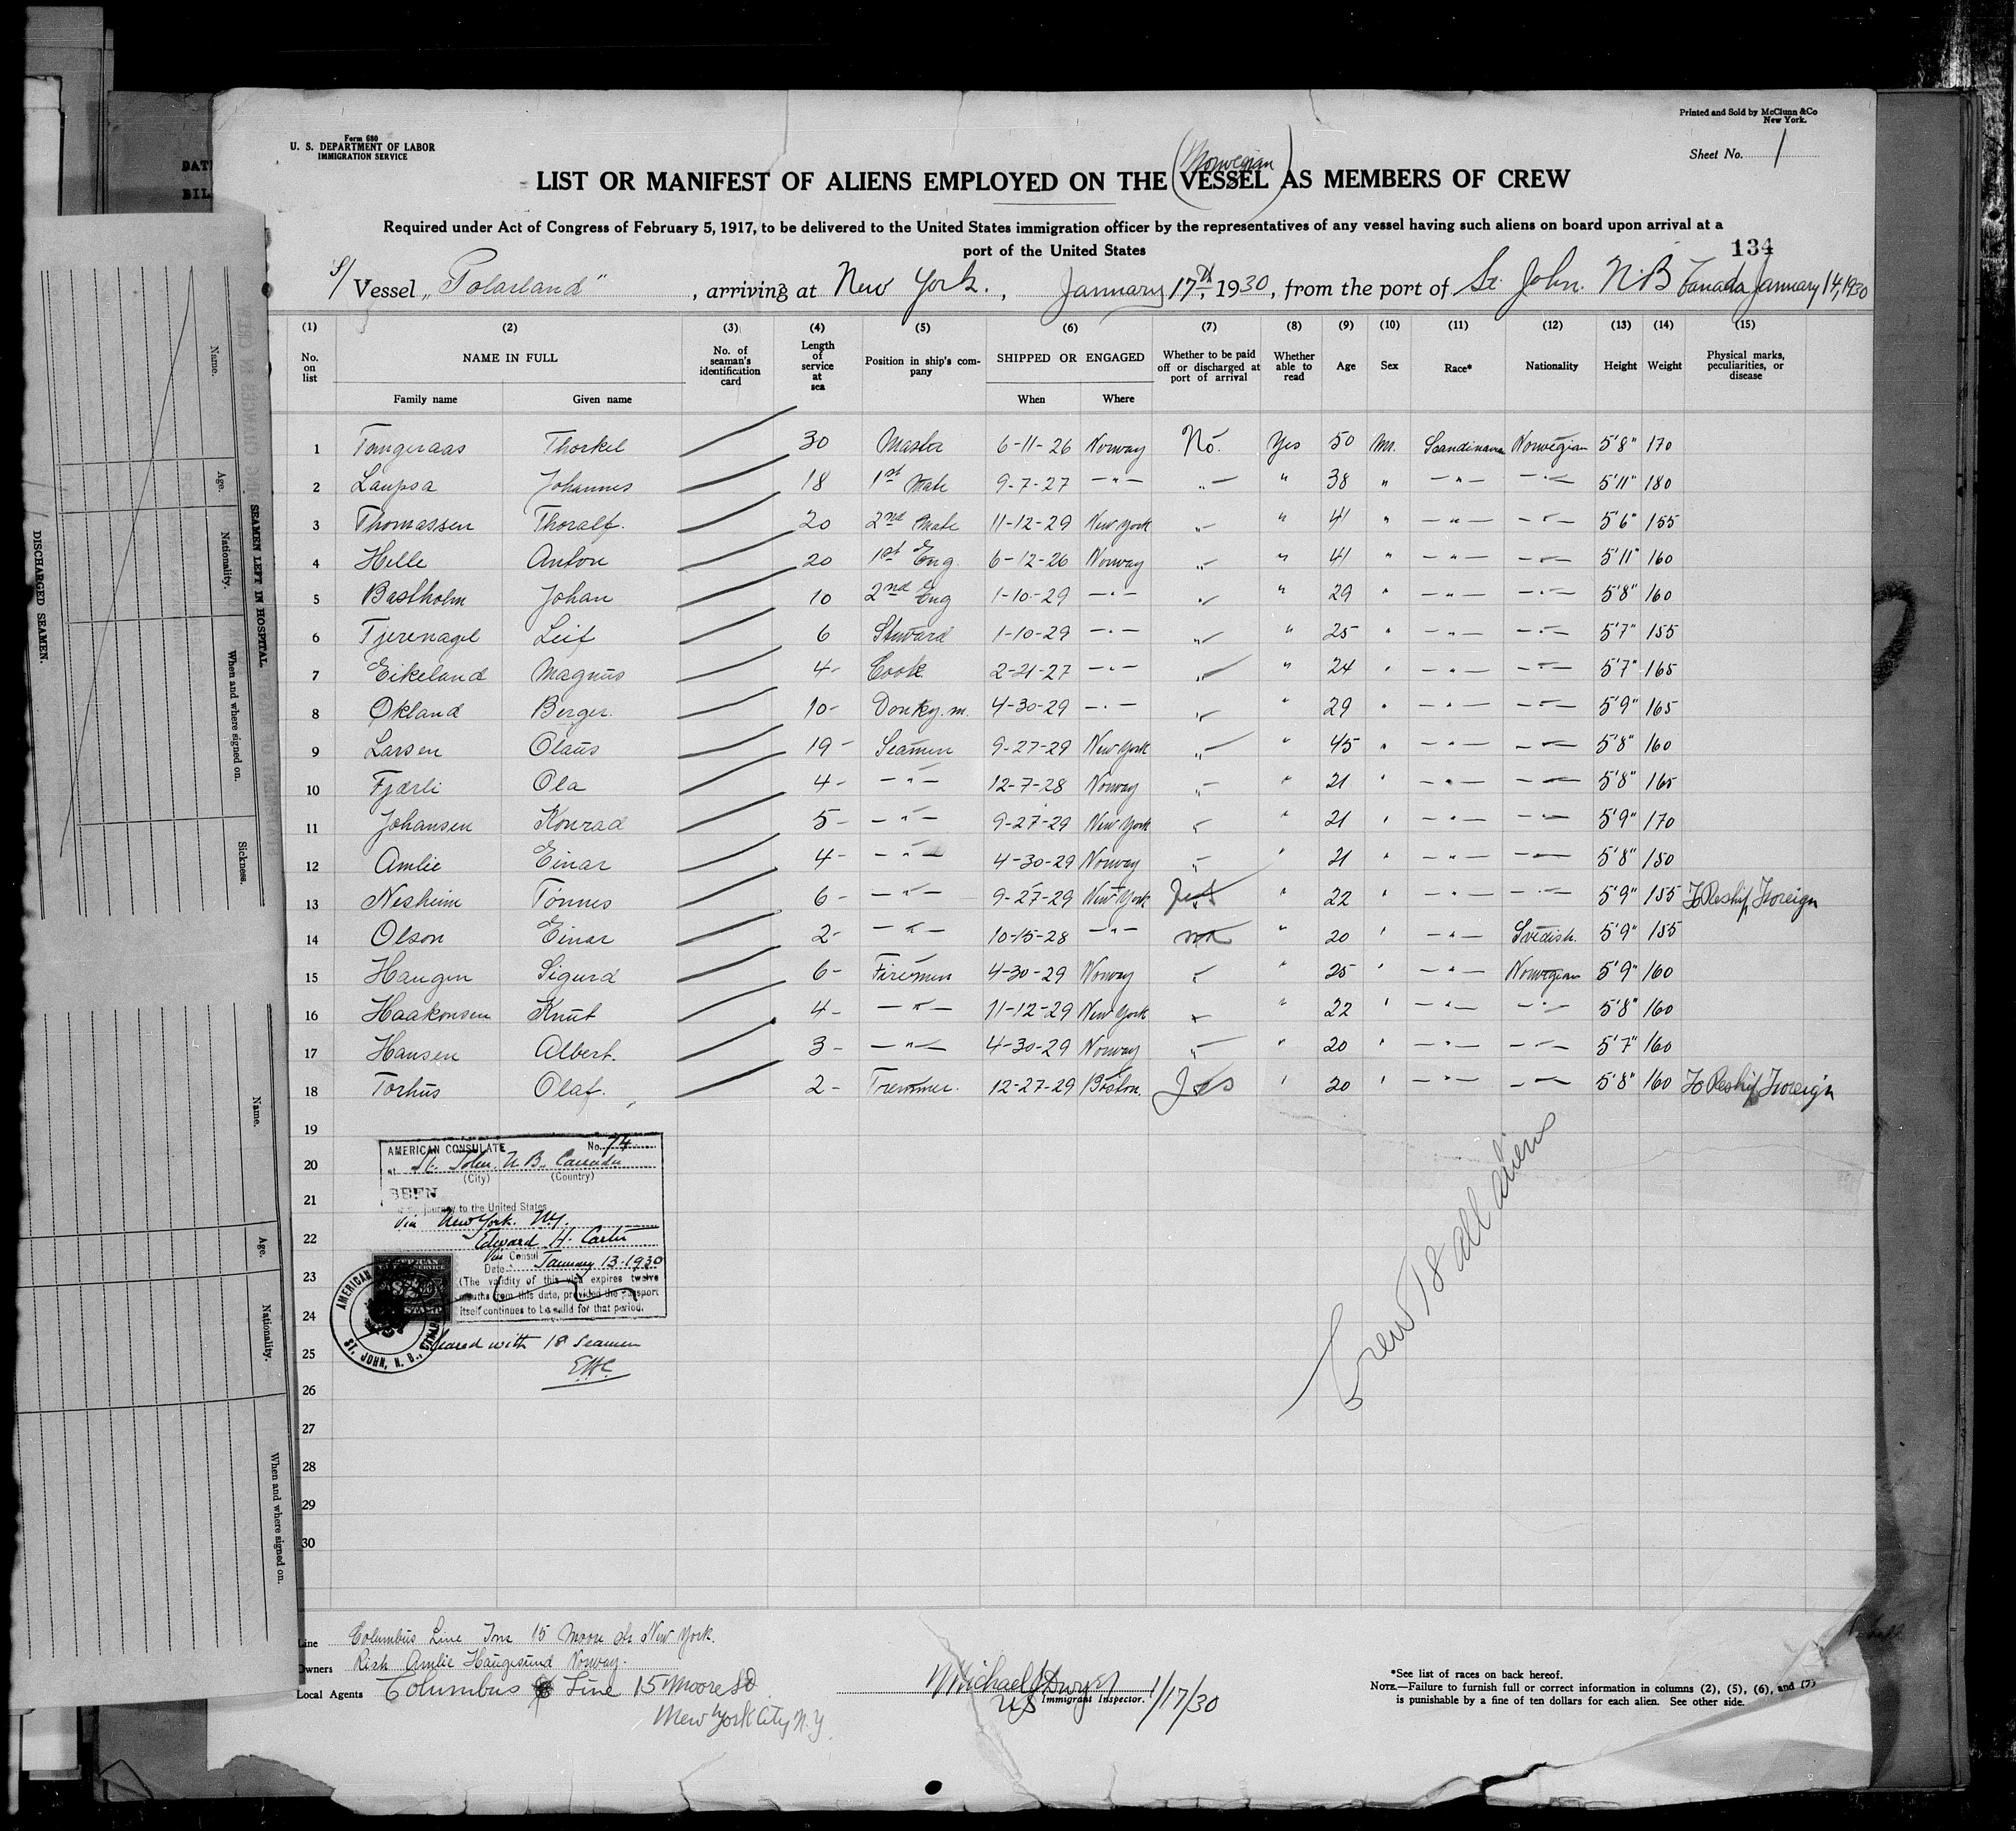 Form 680
U. S. DEPARTMENT OF LABOR
IMMIGRATION SERVICE
Printed and Sold by McClunn & Co
New York.
Sheet No. 1
(Norwegian)
LIST OR MANIFEST OF ALIENS EMPLOYED ON THE VESSEL AS MEMBERS OF CREW
Required under Act of Congress of February 5, 1917, to be delivered to the United States immigration officer by the representatives of any vessel having such aliens on board upon arrival at a
port of the United States
134
S/ Vessel „Polarland", arriving at New York., January 17th, 1930, from the port of St. John. N.B Canada January 14, 1930
(1) (2) (3) (4) (5) (6) (7) (8) (9) (10) (11) (12) (13) (14) (15)
No. on list NAME IN FULL No. of seaman's identification card Length of service at sea Position in ship's company SHIPPED OR ENGAGED Whether to be paid off or discharged at port of arrival Whether able to read Age Sex Race* Nationality Height Weight Physical marks, peculiarities, or disease
Family name Given name When Where
1 Tungeraas Thorkel 30 Master 6-11-26 Norway No. Yes 50 M. Scandinavian Norwegian 5'8" 170
2 Laupsa Johannes 18 1st Mate 9-7-27 -"- " " 38 " -"- -"- 5'11" 180
3 Thomassen Thoralf. 20 2nd Mate 11-12-29 New York " " 41 " -"- -"- 5'6" 155
4 Helle Anton 20 1st Eng 6-12-26 Norway " " 41 " -"- -"- 5'11" 160
5 Bastholm Johan 10 2nd Eng 1-10-29 -"- " " 29 " -"- -"- 5'8" 160
6 Tjerenagel Leif 6 Steward 1-10-29 -"- " " 25 " -"- -"- 5'7" 155
7 Eikeland Magnus 4- Cook 2-21-27 -"- " " 24 " -"- -"- 5'7" 165
8 Økland Berger. 10- Donky.m. 4-30-29 -"- " " 29 " -"- -"- 5'9" 165
9 Larsen Olaus 19- Seamen 9-27-29 New York " " 45 " -"- -"- 5'8" 160
10 Fjærli Ola 4- -"- 12-7-28 Norway " " 21 " -"- -"- 5'8" 165
11 Johansen Konrad 5- -"- 9-27-29 New York " " 21 " -"- -"- 5'9" 170
12 Amlie Einar 4- -"- 4-30-29 Norway " " 21 " -"- -"- 5'8" 150
13 Nesheim Tönnes 6- -"- 9-27-29 New York yes " 22 " -"- -"- 5'9" 155 To Reship Foreign
14 Olson Einar 2- -"- 10-15-28 -"- no " 20 " -"- Svedish. 5'9" 155
15 Haugen Sigurd 6- Firemen 4-30-29 Norway " " 25 " -"- Norwegian 5'9" 160
16 Haakonsen Knut 4- -"- 11-12-29 New York " " 22 " -"- -"- 5'8" 160
17 Hansen Albert. 3- -"- 4-30-29 Norway " " 20 " -"- -"- 5'7" 160
18 Torhus Olaf. 2- Tremmer. 12-27-29 Boston. Yes " 20 " -"- -"- 5'8" 160 To Reship Foreign
19
20
21
22
23
24
25
26
27
28
29
30
AMERICAN CONSULATE No. 74
at St. John N. B. Canada
(City) (Country)
SEEN
journey to the United States
via New York. N.Y.
Edward H. Carter
Vice Consul
Date: January 13-1930
(The validity of this visa expires twelve
months from this date, provided the passport
itself continues to be valid for that period.
AMERICAN
ST. JOHN, N. B., CANADA
Cleared with 18 Seamen
EHC
Crew 18 all aliens
Line Columbus Line Inc 15 Moore St. New York.
Owners Rich Amlie Haugesund Norway.
Local Agents Columbus Line 15 Moore St
New York City N.Y.
Michael J Dwyer
US Immigrant Inspector. 1/17/30
*See list of races on back hereof.
NOTE.—Failure to furnish full or correct information in columns (2), (5), (6), and (7)
is punishable by a fine of ten dollars for each alien. See other side.
SEAMEN LEFT IN HOSPITAL.
Name. Age. Nationality. When and where signed on. Sickness.
DISCHARGED SEAMEN.
Name. Age. Nationality. When and where signed on.